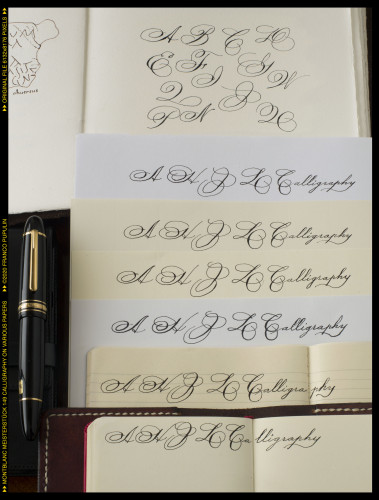 A B C D
E F I G W
Q J
P N X
Austrius
A H J L Calligraphy
A H J L Calligraphy
A H J L Calligraphy
A H J L Calligraphy
A H J L Calligraphy
A H J L Calligraphy
▸▸ ORIGINAL FILE 6132x8176 PIXELS ▸▸
▸▸ ©2020 FRANCO PUPULIN
▸▸ MONTBLANC MEISTERSTÜCK 149 CALLIGRAPHY ON VARIOUS PAPERS